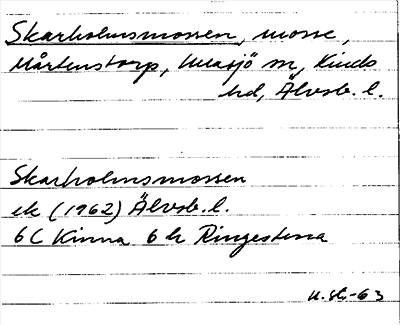 Skarholmsmossen, mosse,
Mårtenstorp, Mosjö sn, Kinds
hd, Älvsb. l.
Skarholmsmossen
ek (1962) Älvsb. l.
6C Kinna 6 h Ringestena
-63